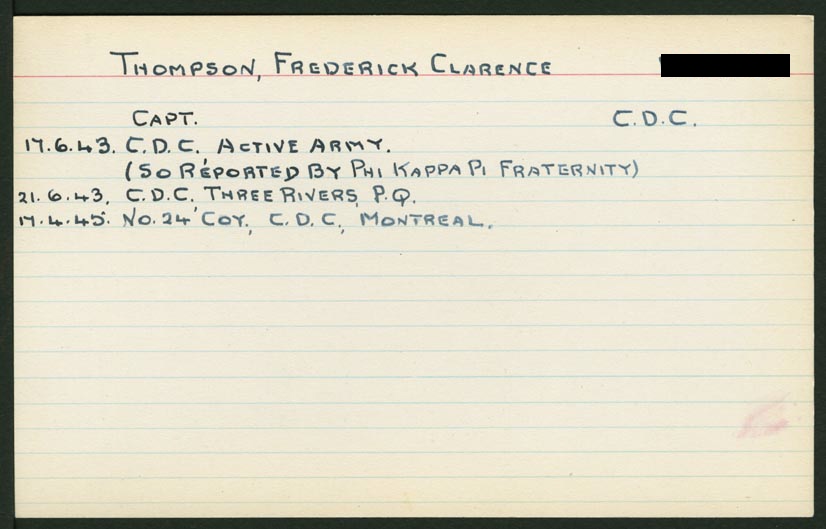 THOMPSON, FREDERICK CLARENCE
CAPT. C.D.C.
17.6.43. C.D.C. ACTIVE ARMY.
(SO REPORTED BY PHI KAPPA PI FRATERNITY)
21.6.43, C.D.C, THREE RIVERS, P.Q.
17.4.45. NO. 24 COY., C.D.C., MONTREAL.